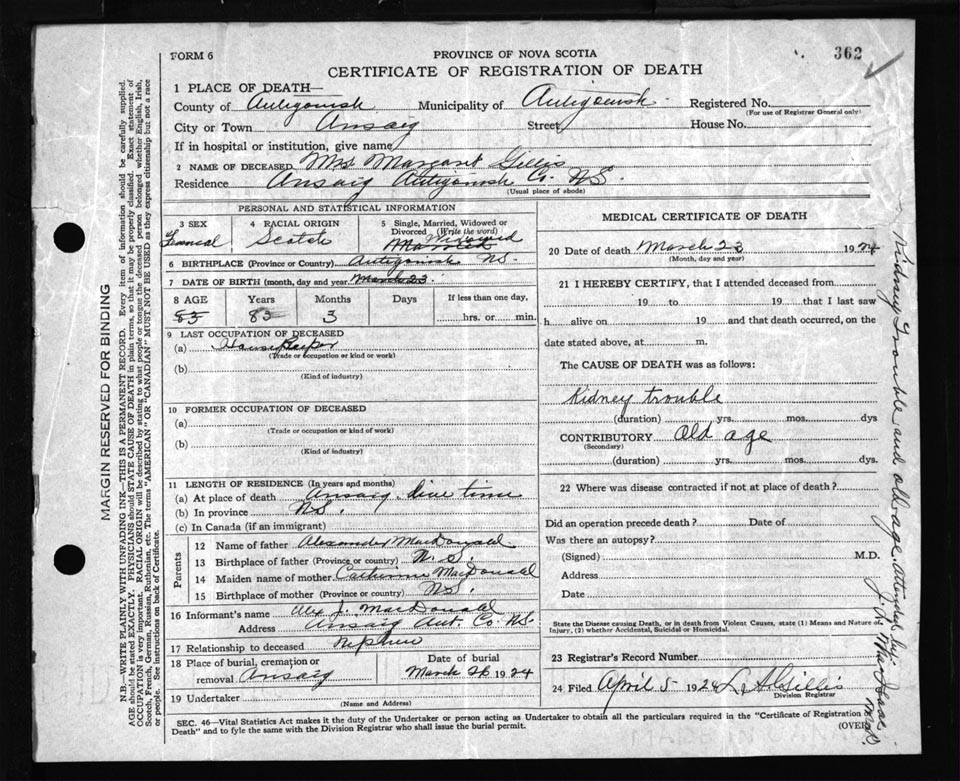 362
FORM 6
PROVINCE OF NOVA SCOTIA
CERTIFICATE OF REGISTRATION OF DEATH
1 PLACE OF DEATH—
County of Antigonish Municipality of Antigonish Registered No.
(For use of Registrar General only)
City or Town Arisaig Street House No.
If in hospital or institution, give name
2 NAME OF DECEASED Mrs Margaret Gillis
Residence Arisaig Antigonish Co. N.S.
(Usual place of abode)
PERSONAL AND STATISTICAL INFORMATION
3 SEX Femeal
4 RACIAL ORIGIN Scotch
5 Single, Married, Widowed or Divorced (Write the word) Married Widowed
6 BIRTHPLACE (Province or Country) Antigonish N.S.
7 DATE OF BIRTH (month, day and year) March 23
8 AGE Years Months Days If less than one day,
83 83 3 hrs. or min.
9 LAST OCCUPATION OF DECEASED
(a) House Keeper
(Trade or occupation or kind or work)
(b)
(Kind of industry)
10 FORMER OCCUPATION OF DECEASED
(a)
(Trade or occupation or kind of work)
(b)
(Kind of industry)
11 LENGTH OF RESIDENCE (In years and months)
(a) At place of death Arisaig. live time
(b) In province N.S.
(c) In Canada (if an immigrant)
Parents
12 Name of father Alexander MacDonald
13 Birthplace of father (Province or country) N. S.
14 Maiden name of mother Catherine MacDonald
15 Birthplace of mother (Province or country) N.S.
16 Informant's name Alex J. MacDonald
Address Arisaig Ant. Co. N.S.
17 Relationship to deceased Nephew
18 Place of burial, cremation or removal Arisaig
Date of burial March 26 1924
19 Undertaker
(Name and Address)
MEDICAL CERTIFICATE OF DEATH
20 Date of death March 23 1924
(Month, day and year)
21 I HEREBY CERTIFY, that I attended deceased from
19 to 19 that I last saw
h alive on 19 and that death occurred, on the
date stated above, at m.
The CAUSE OF DEATH was as follows:
Kidney trouble
(duration) yrs. mos. dys
CONTRIBUTORY Old age
(Secondary)
(duration) yrs. mos. dys.
22 Where was disease contracted if not at place of death?
Did an operation precede death? Date of
Was there an autopsy?
(Signed) M.D.
Address
Date
State the Disease causing Death, or in death from Violent Causes, state (1) Means and Nature of
Injury, (2) whether Accidental, Suicidal or Homicidal.
23 Registrar's Record Number
24 Filed April 5 1924 L. A. Gillis
Division Registrar
SEC. 46—Vital Statistics Act makes it the duty of the Undertaker or person acting as Undertaker to obtain all the particulars required in the "Certificate of Registration of
Death" and to fyle the same with the Division Registrar who shall issue the burial permit.
(OVER)
MARGIN RESERVED FOR BINDING
N.B.—WRITE PLAINLY WITH UNFADING INK—THIS IS A PERMANENT RECORD. Every item of information should be carefully supplied.
AGE should be stated EXACTLY. PHYSICIANS should STATE CAUSE OF DEATH in plain terms, so that it may be properly classified. Exact statement of
OCCUPATION is very important. RACIAL ORIGIN will be described by stating to what people or tongue the deceased person belonged whether English, Irish,
Scotch, French, German, Russian, Ruthenian, etc. The terms "AMERICAN" or "CANADIAN" MUST NOT BE USED as they express citizenship but not a race
or people. See instructions on back of Certificate.
Kidney Trouble and old age attended by